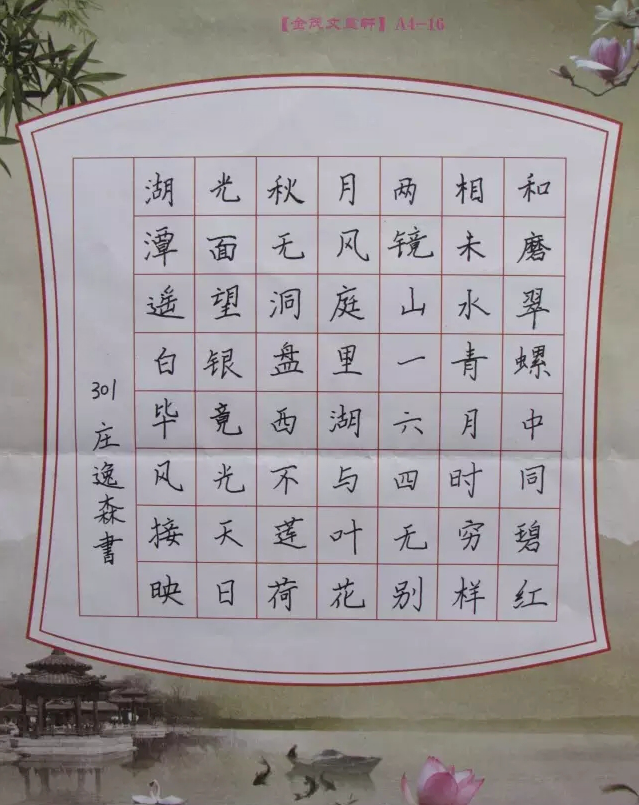 【金茂文显轩】A4-16
湖光秋月两相和
潭面无风镜未磨
遥望洞庭山水翠
白银盘里一青螺
毕竟西湖六月中
风光不与四时同
接天莲叶无穷碧
映日荷花别样红
301庄逸森書